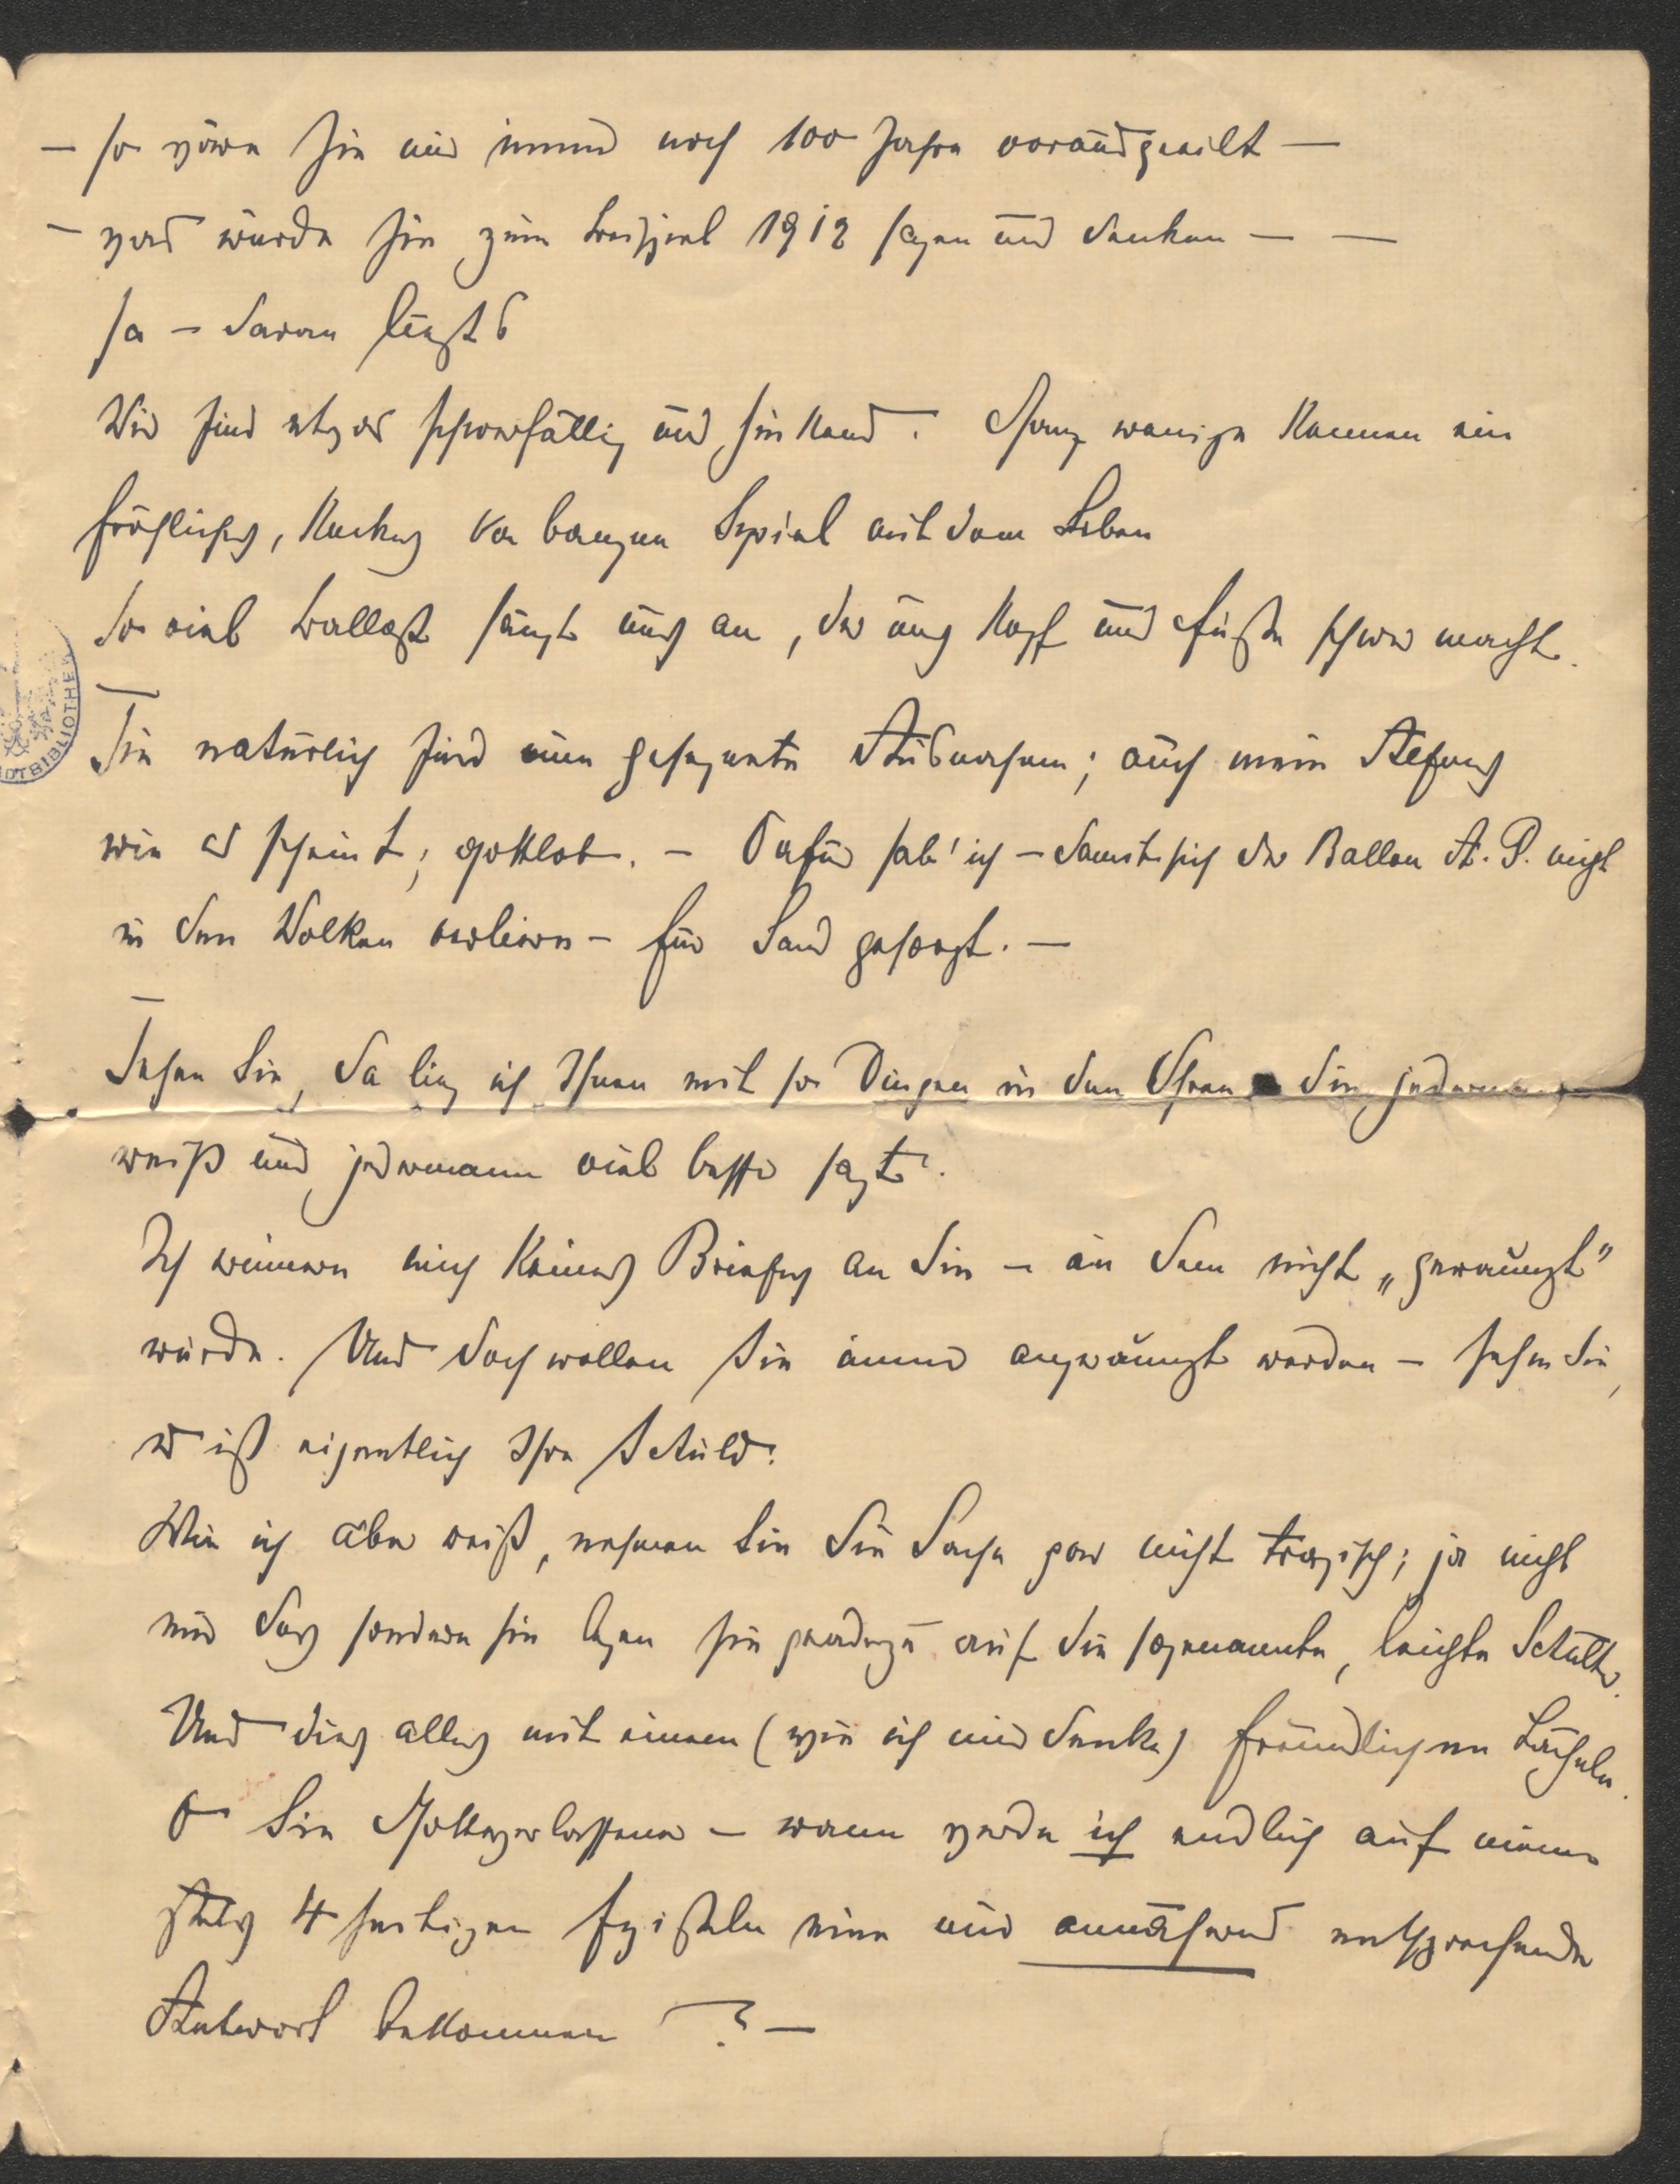 – so wären Sie mir immer noch 100 Jahre vorausgeeilt –
– was würde Sie zum Beispiel 1912 sagen und denken – –
ja – daran liegt's
Wir sind etwas schwerfällig und hinkend. Ganz wenige kennen ein
fröhliches, keckes Spiel mit dem Leben
So viel Ballast hängt uns an, der uns Kopf und Füße schwer macht.
Sie natürlich sind eine gesegnete Ausnahme; auch mein
wie es scheint; gottlob. – Dafür hab' ich – damit sich der Ballon A. P. nicht
in den Wolken verliere – für Sand gesorgt. –
Sehen Sie, da lieg ich Ihnen mit so Dingen in den Ohren die jedermann
weiß und jedermann viel besser sagte.
Ich erinnere mich keines Briefes an Sie – in dem nicht „geraunzt"
würde. Und doch wollen Sie immer angeraunzt werden – sehen Sie,
es ist eigentlich Ihre Schuld.
Wie ich aber weiß, nehmen Sie die Sache gar nicht tragisch; ja nicht
nur das sondern Sie legen sie geradezu auf die sogenannte, leichte Schulter.
Und dies alles mit einem (wie ich mir denke) freundlichen Lächeln.
O Sie Gottverlassener – wann werde ich endlich auf meine
stets 4 seitigen Episteln eine nur annähernd entsprechende
Antwort bekommen ? –